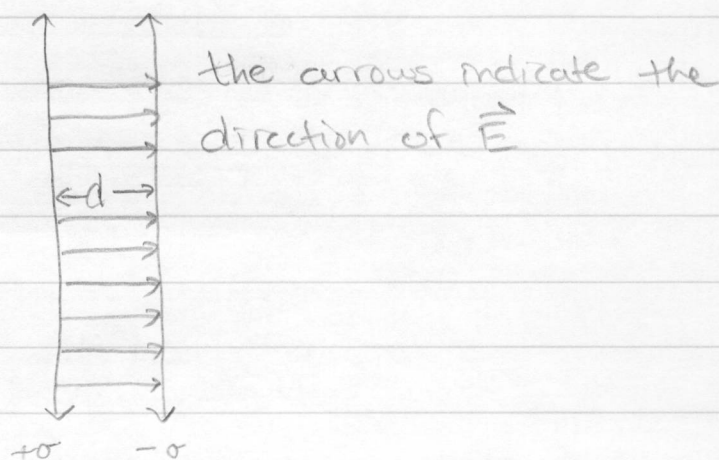 the arrows indicate the
direction of E⃗
d
+σ -σ